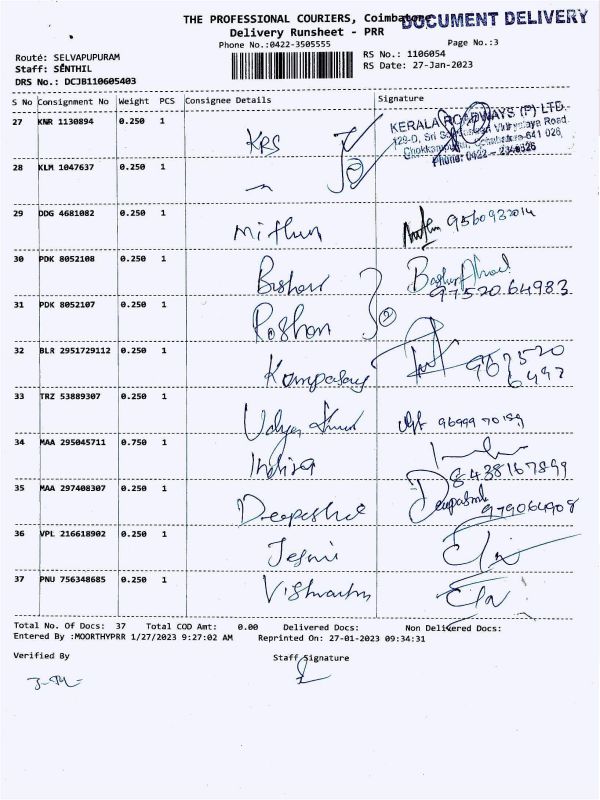 THE PROFESSIONAL COURIERS, Coimbatore
DOCUMENT DELIVERY
Delivery Runsheet - PRR
Phone No.:0422-3505555
Page No.:3
Route: SELVAPUPURAM
RS No.: 1106054
Staff: SENTHIL
RS Date: 27-Jan-2023
DRS No.: DCJB110605403
S No Consignment No Weight PCS Consignee Details Signature
27 KNR 1130894 0.250 1 KRS
KERALA ROADWAYS (P) LTD.
Phone: 0422 - 2346326
28 KLM 1047637 0.250 1
29 DDG 4681082 0.250 1 Mithun
30 PDK 8052108 0.250 1 Bishar
9752064983
31 PDK 8052107 0.250 1 Roshan 2
32 BLR 2951729112 0.250 1
33 TRZ 53889307 0.250 1
34 MAA 295045711 0.750 1 Indira
8438167899
35 MAA 297408307 0.250 1
979064908
36 VPL 216618902 0.250 1
37 PNU 756348685 0.250 1
Total No. Of Docs: 37 Total COD Amt: 0.00 Delivered Docs: Non Delivered Docs:
Entered By :MOORTHYPRR 1/27/2023 9:27:02 AM Reprinted On: 27-01-2023 09:34:31
Verified By Staff Signature